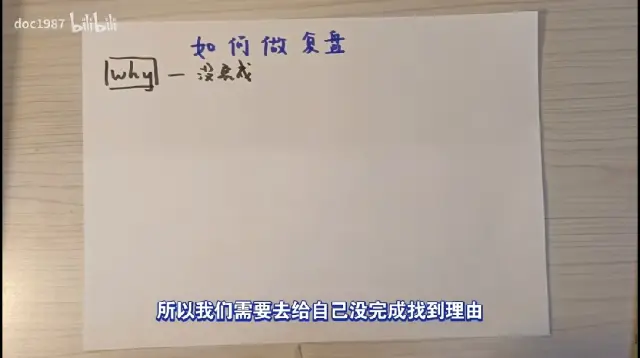 doc1987 bilibili
如何做复盘
why — 没完成
所以我们需要去给自己没完成找到理由